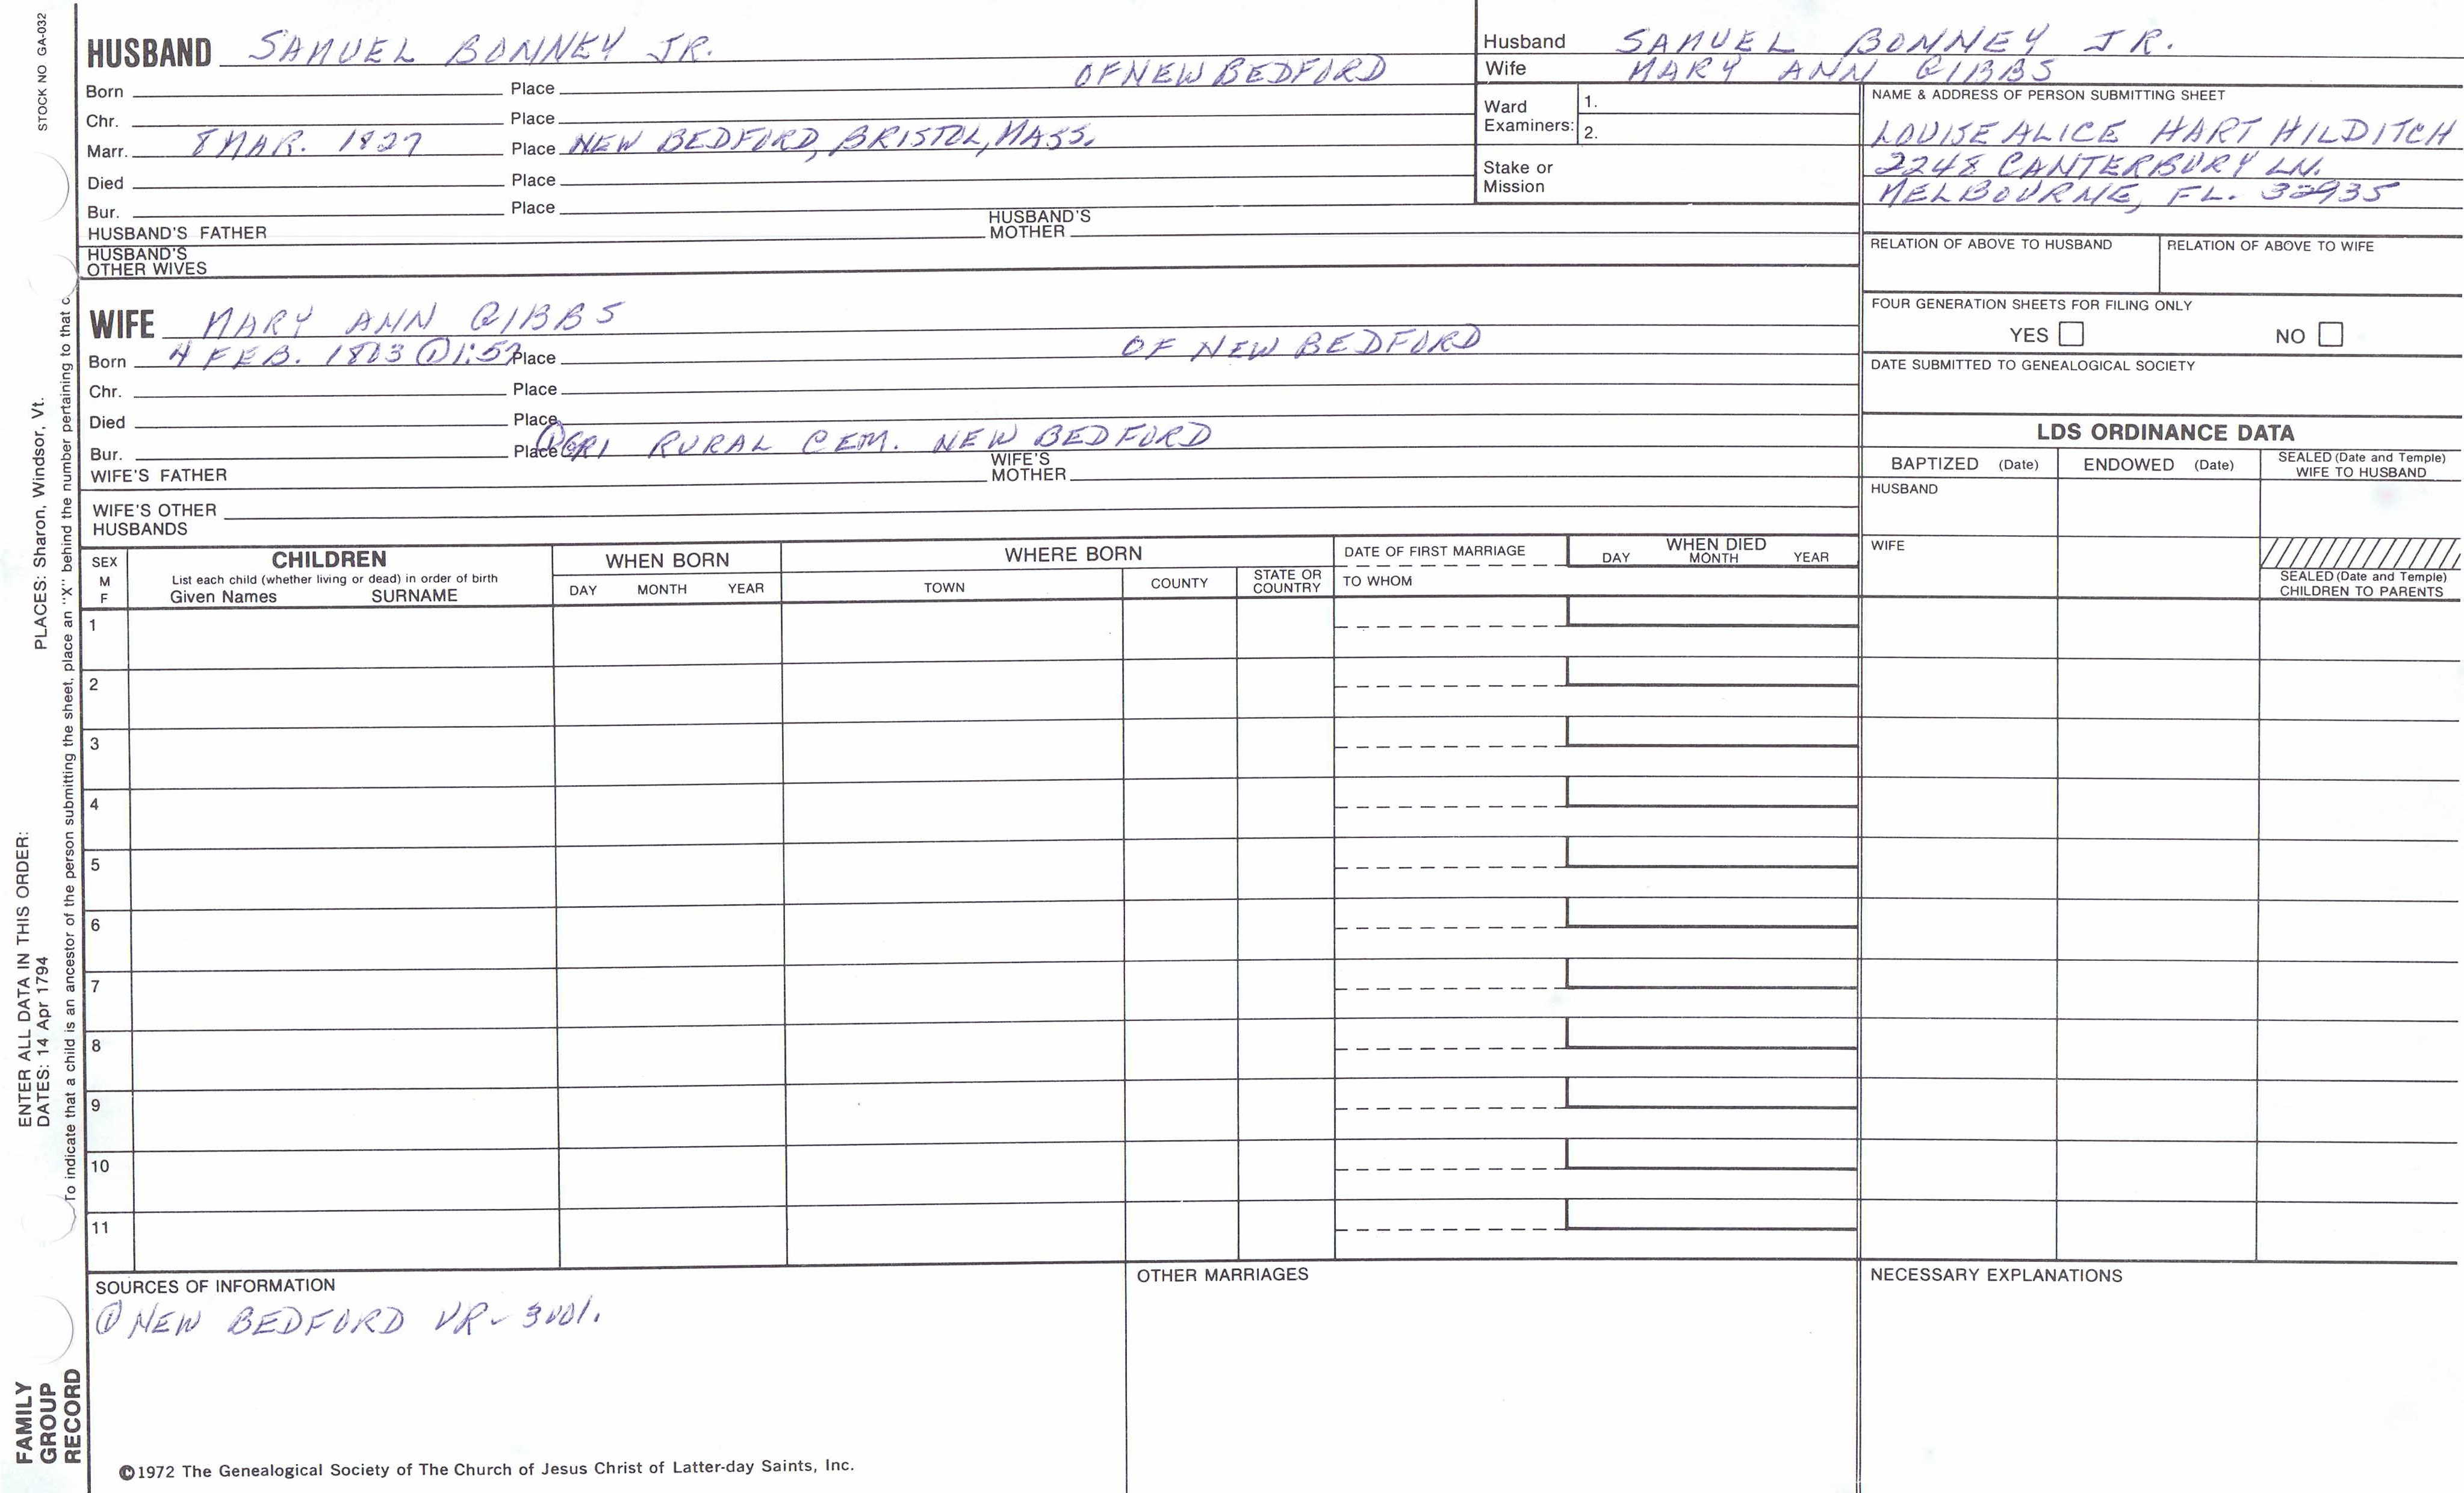 STOCK NO GA-032
HUSBAND SAMUEL BONNEY JR.
Born Place OF NEW BEDFORD
Chr. Place
Marr. 8 MAR. 1827 Place NEW BEDFORD, BRISTOL, MASS.
Died Place
Bur. Place
HUSBAND'S FATHER HUSBAND'S MOTHER
HUSBAND'S OTHER WIVES
Husband SAMUEL BONNEY JR.
Wife MARY ANN GIBBS
Ward Examiners: 1.
2.
Stake or Mission
NAME & ADDRESS OF PERSON SUBMITTING SHEET
LOUISE ALICE HART HILDITCH
2248 CANTERBURY LN.
MELBOURNE, FL. 32935
RELATION OF ABOVE TO HUSBAND RELATION OF ABOVE TO WIFE
FOUR GENERATION SHEETS FOR FILING ONLY
YES NO
DATE SUBMITTED TO GENEALOGICAL SOCIETY
WIFE MARY ANN GIBBS
Born 4 FEB. 1803 ① 1:52 Place OF NEW BEDFORD
Chr. Place
Died Place
Bur. Place ① GR1 RURAL CEM. NEW BEDFORD
WIFE'S FATHER WIFE'S MOTHER
WIFE'S OTHER HUSBANDS
LDS ORDINANCE DATA
BAPTIZED (Date) ENDOWED (Date) SEALED (Date and Temple) WIFE TO HUSBAND
HUSBAND
WIFE
SEALED (Date and Temple) CHILDREN TO PARENTS
SEX M F
CHILDREN
List each child (whether living or dead) in order of birth
Given Names SURNAME
WHEN BORN
DAY MONTH YEAR
WHERE BORN
TOWN COUNTY STATE OR COUNTRY
DATE OF FIRST MARRIAGE
TO WHOM
WHEN DIED
DAY MONTH YEAR
1
2
3
4
5
6
7
8
9
10
11
SOURCES OF INFORMATION
① NEW BEDFORD VR - 3 vol.
OTHER MARRIAGES
NECESSARY EXPLANATIONS
©1972 The Genealogical Society of The Church of Jesus Christ of Latter-day Saints, Inc.
FAMILY GROUP RECORD
ENTER ALL DATA IN THIS ORDER:
DATES: 14 Apr 1794 PLACES: Sharon, Windsor, Vt.
To indicate that a child is an ancestor of the person submitting the sheet, place an "X" behind the number pertaining to that c